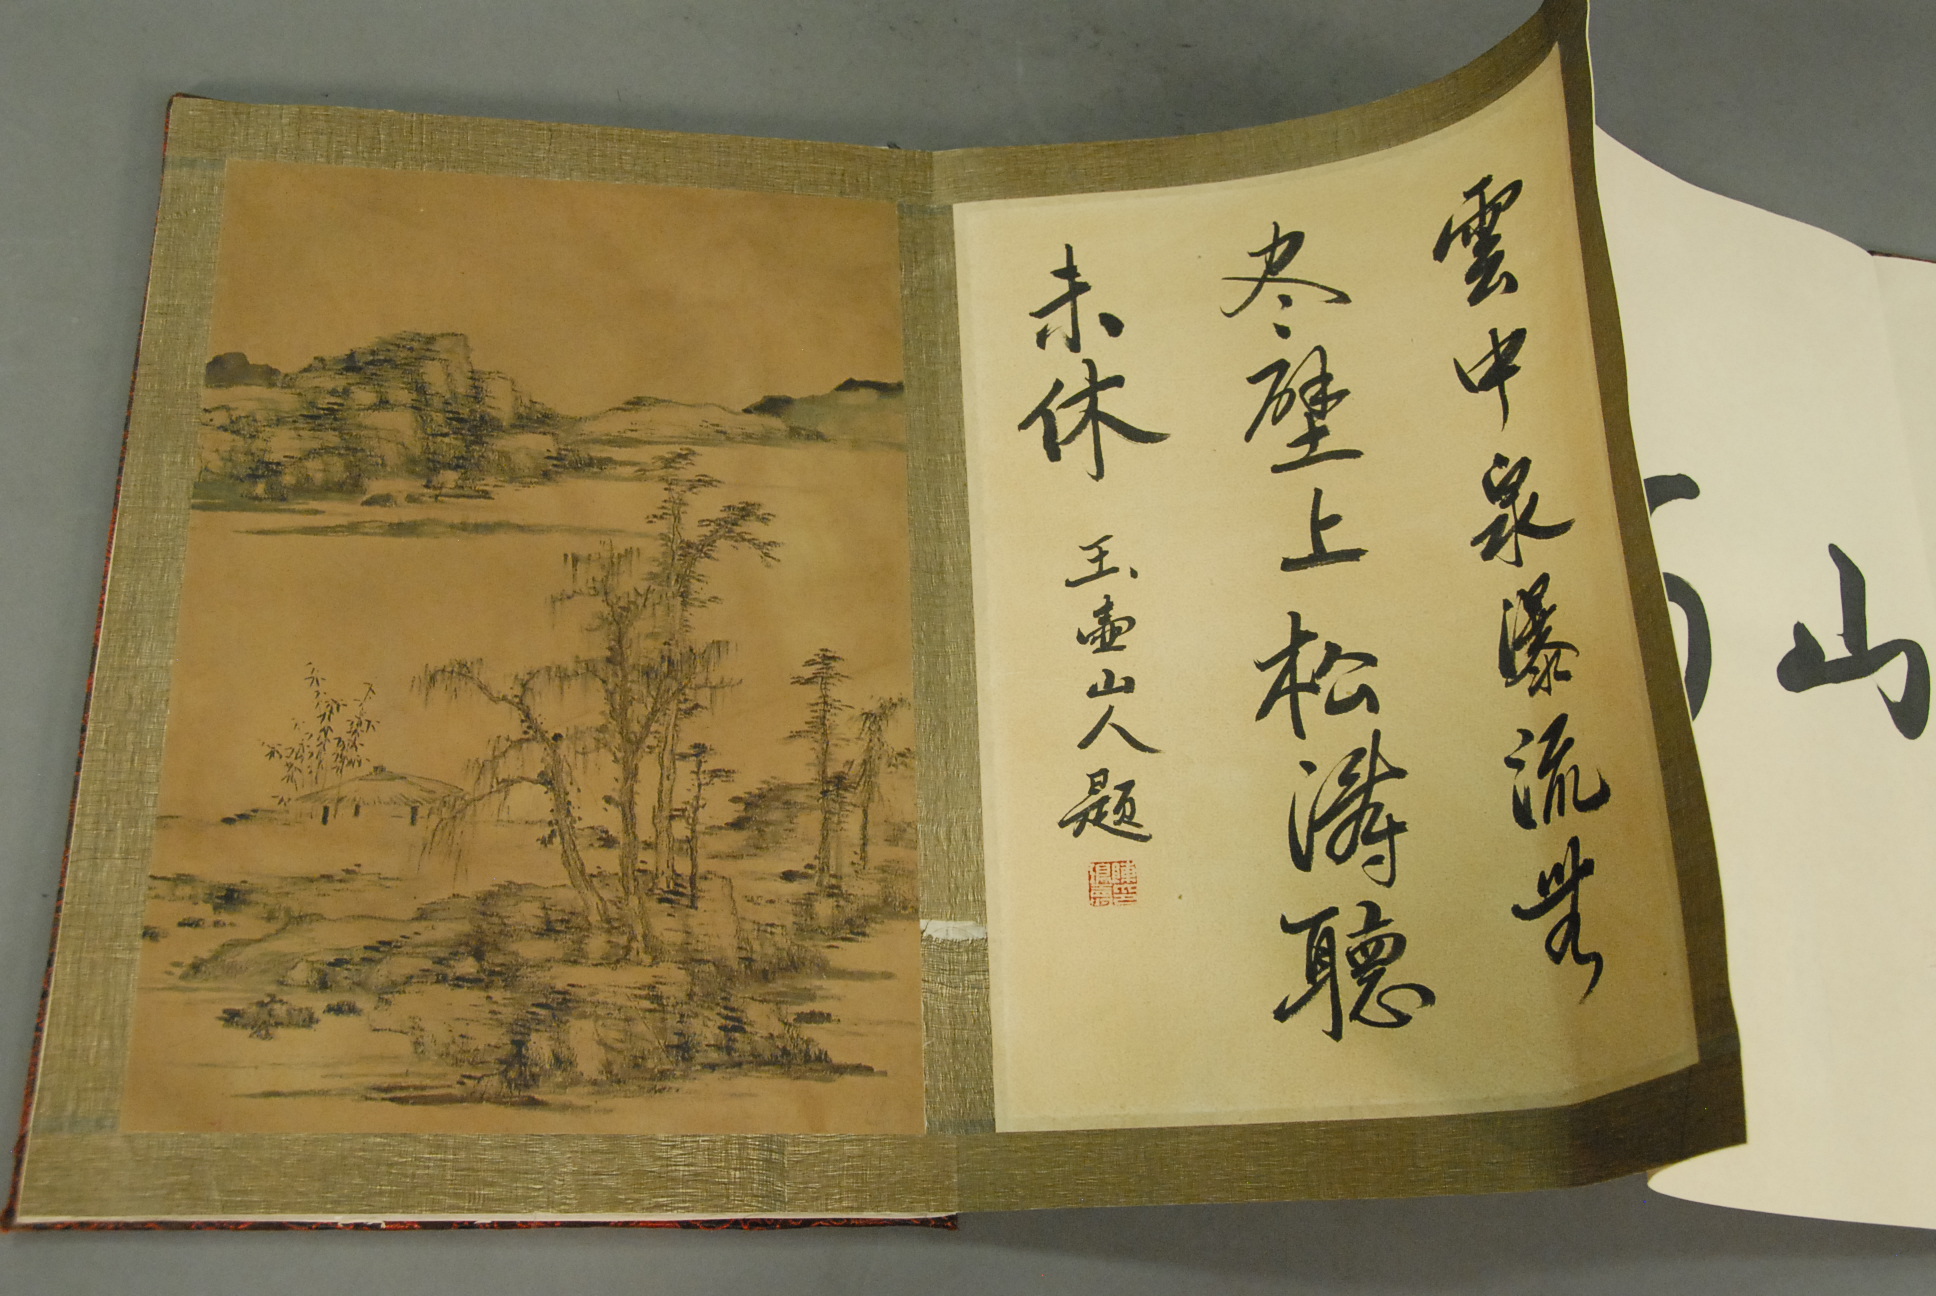 山
雲中泉瀑流無
尽壁上松濤聽
未休
玉壺山人題